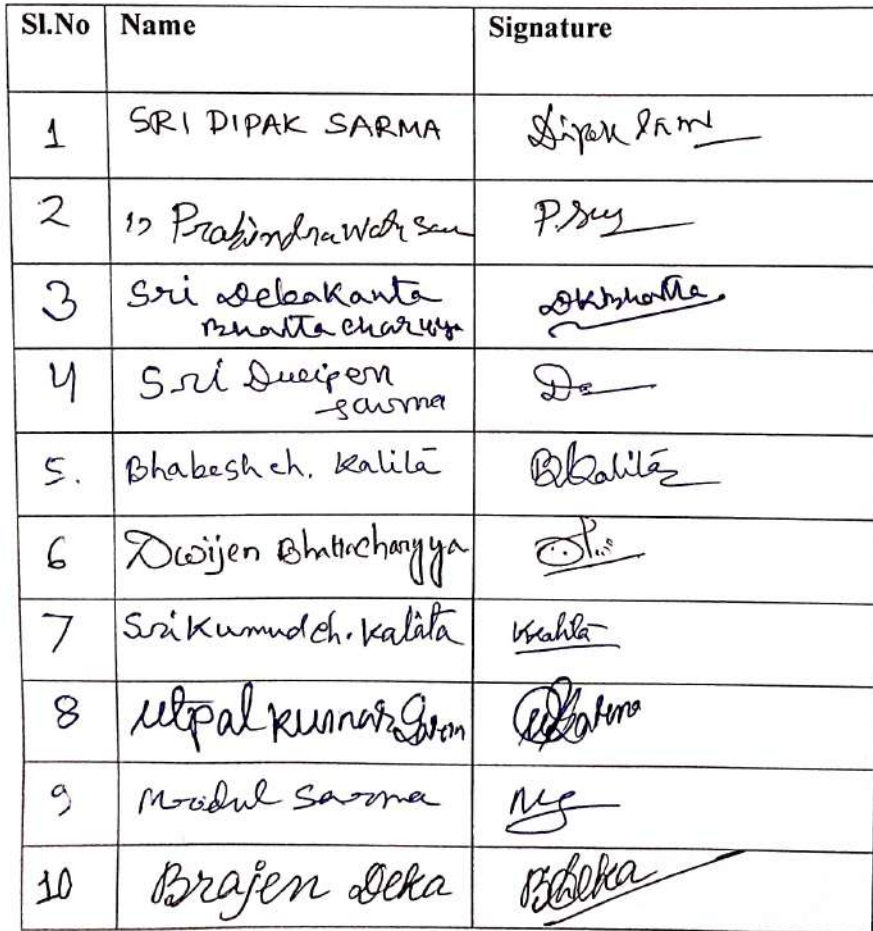 Sl.No Name Signature
1 SRI DIPAK SARMA Dipak Sarm
2 Prabindra
3 Sri Debakanta DKBhatta
Bhattacharyya
4 Sri Dwipen
Sarma
5. Bhabesh ch. Kalita BKalita
6 Dwijen Bhattacharyya
7 Sri Kumud ch. Kalita Kkalita
8 Utpal kumar Sarm UkSarma
9 Mridul Sarma
10 Brajen Deka BDeka